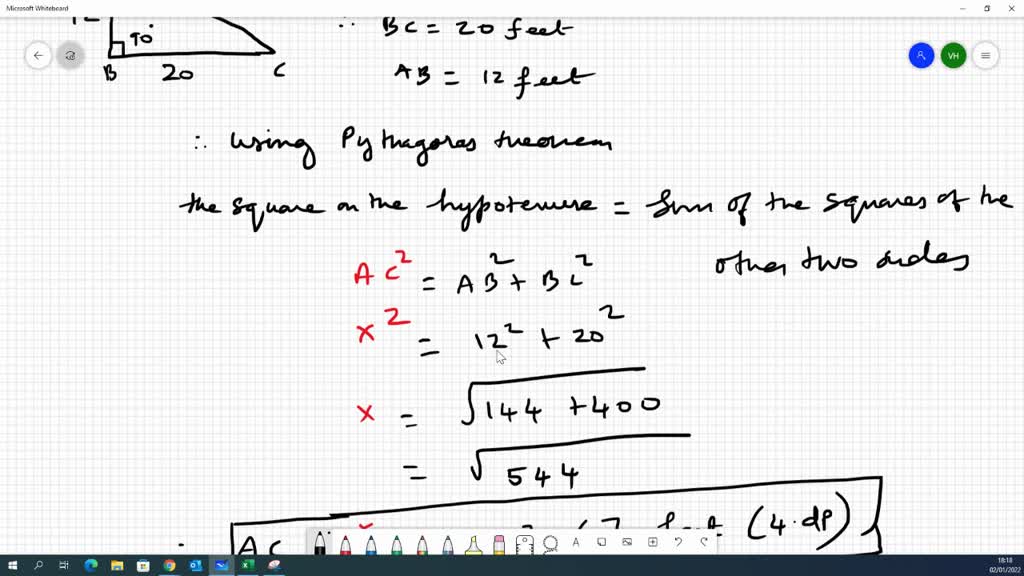 Microsoft Whiteboard
∴ BC = 20 feet
90
B 20 C
VH
AB = 12 feet
∴ using Pythagores theorem
the square on the hypotenuse = Sum of the squares of the
other two sides
AC² = AB² + BC²
x² = 12² + 20²
x = √144 + 400
= √544
∴ AC feet (4.dp)
A
18:18
02/01/2022